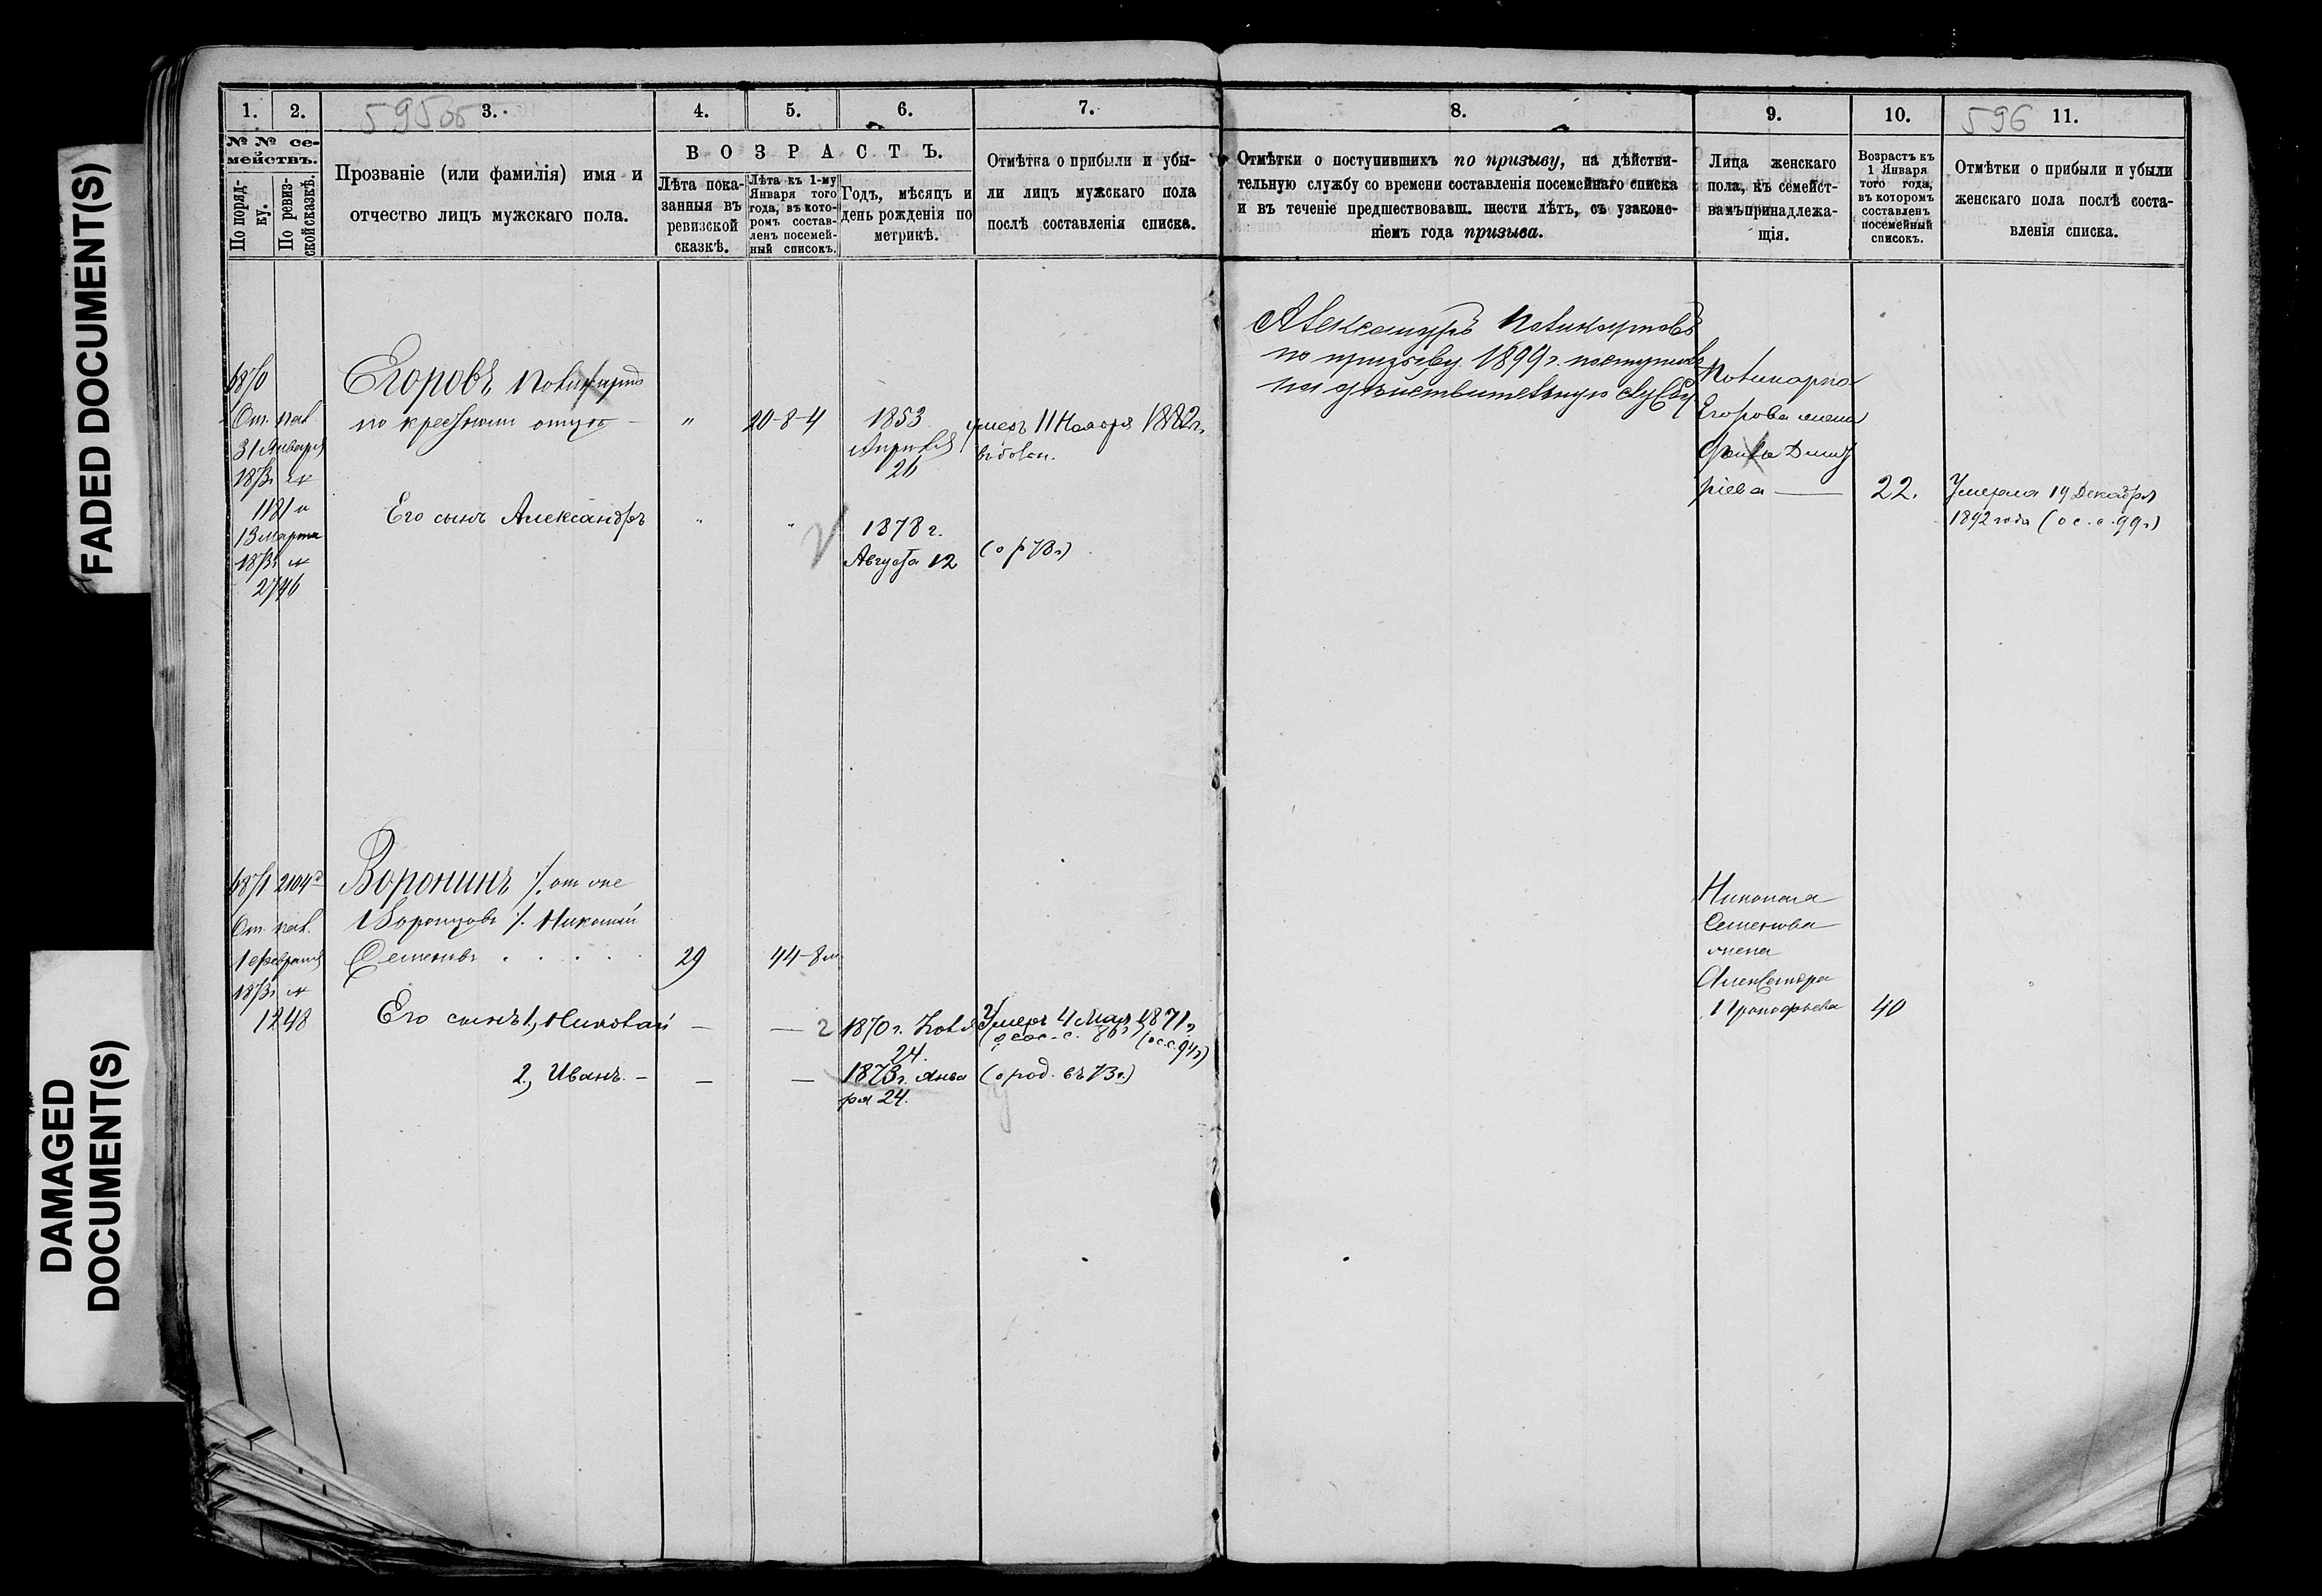 FADED DOCUMENT(S)
DAMAGED
DOCUMENT(S)
1.
2.
3.
595
4.
5.
6.
7.
8.
9.
10.
596
11.
№ № се-
мействъ.
По поряд-
ку.
По ревиз-
ской сказкѣ.
Прозваніе (или фамилія) имя и
отчество лицъ мужскаго пола.
ВОЗРАСТЪ.
Лѣта пока-
занныя въ
ревизской
сказкѣ.
Лѣта къ 1-му
Января того
года, въ кото-
ромъ состав-
ленъ посемей-
ный списокъ.
Годъ, мѣсяцъ и
день рожденія по
метрикѣ.
Отмѣтка о прибыли и убы-
ли лицъ мужскаго пола
послѣ составленія списка.
Отмѣтки о поступившихъ по призыву, на дѣйстви-
тельную службу со времени составленія посемейнаго списка
и въ теченіе предшествовавш. шести лѣтъ, съ узаконе-
ніемъ года призыва.
Лица женскаго
пола, къ семейст-
вамъ принадлежа-
щія.
Возрастъ къ
1 Января
того года,
въ которомъ
составленъ
посемейный
списокъ.
Отмѣтки о прибыли и убыли
женскаго пола послѣ соста-
вленія списка.
6870
От. пал.
31 Января
1873 г №
1181 и
13 марта
1873 г №
2746
Егоровъ Поликарпъ
по крестном отцу
"
20-8-4
1853
Апрѣля
26
умеръ 11 Ноября 1882 г.
Его сынъ Александръ
"
"
1878 г.
Августа 12
(о р 78 г)
Александръ Поликарповъ
по призыву 1899 г. поступилъ
на дѣйствительную службу
Поликарпа
Егорова жена
Дмит
ріева
22.
Умерла 19 Декабря
1892 года (о с. с. 99 г)
6871
2104
От. пал.
1 февраля
1873 г №
1248
Воронинъ /. он же
Воронцовъ /. Николай
Семеновъ
29
44-8 м
Его сынъ 1, Николай
—
—
1870 г. Іюля
24.
Умеръ 4 Мая 1871 г.
(о с.с. 94 г)
2, Иванъ. —
—
—
1873 г. Янва
ря 24.
(о род. въ 73 г.)
Николая
Семенова
жена
Александра
Прокофьева
40